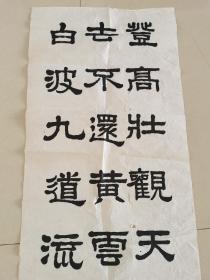 登高壯觀天
去不還黃雲
白波九道流